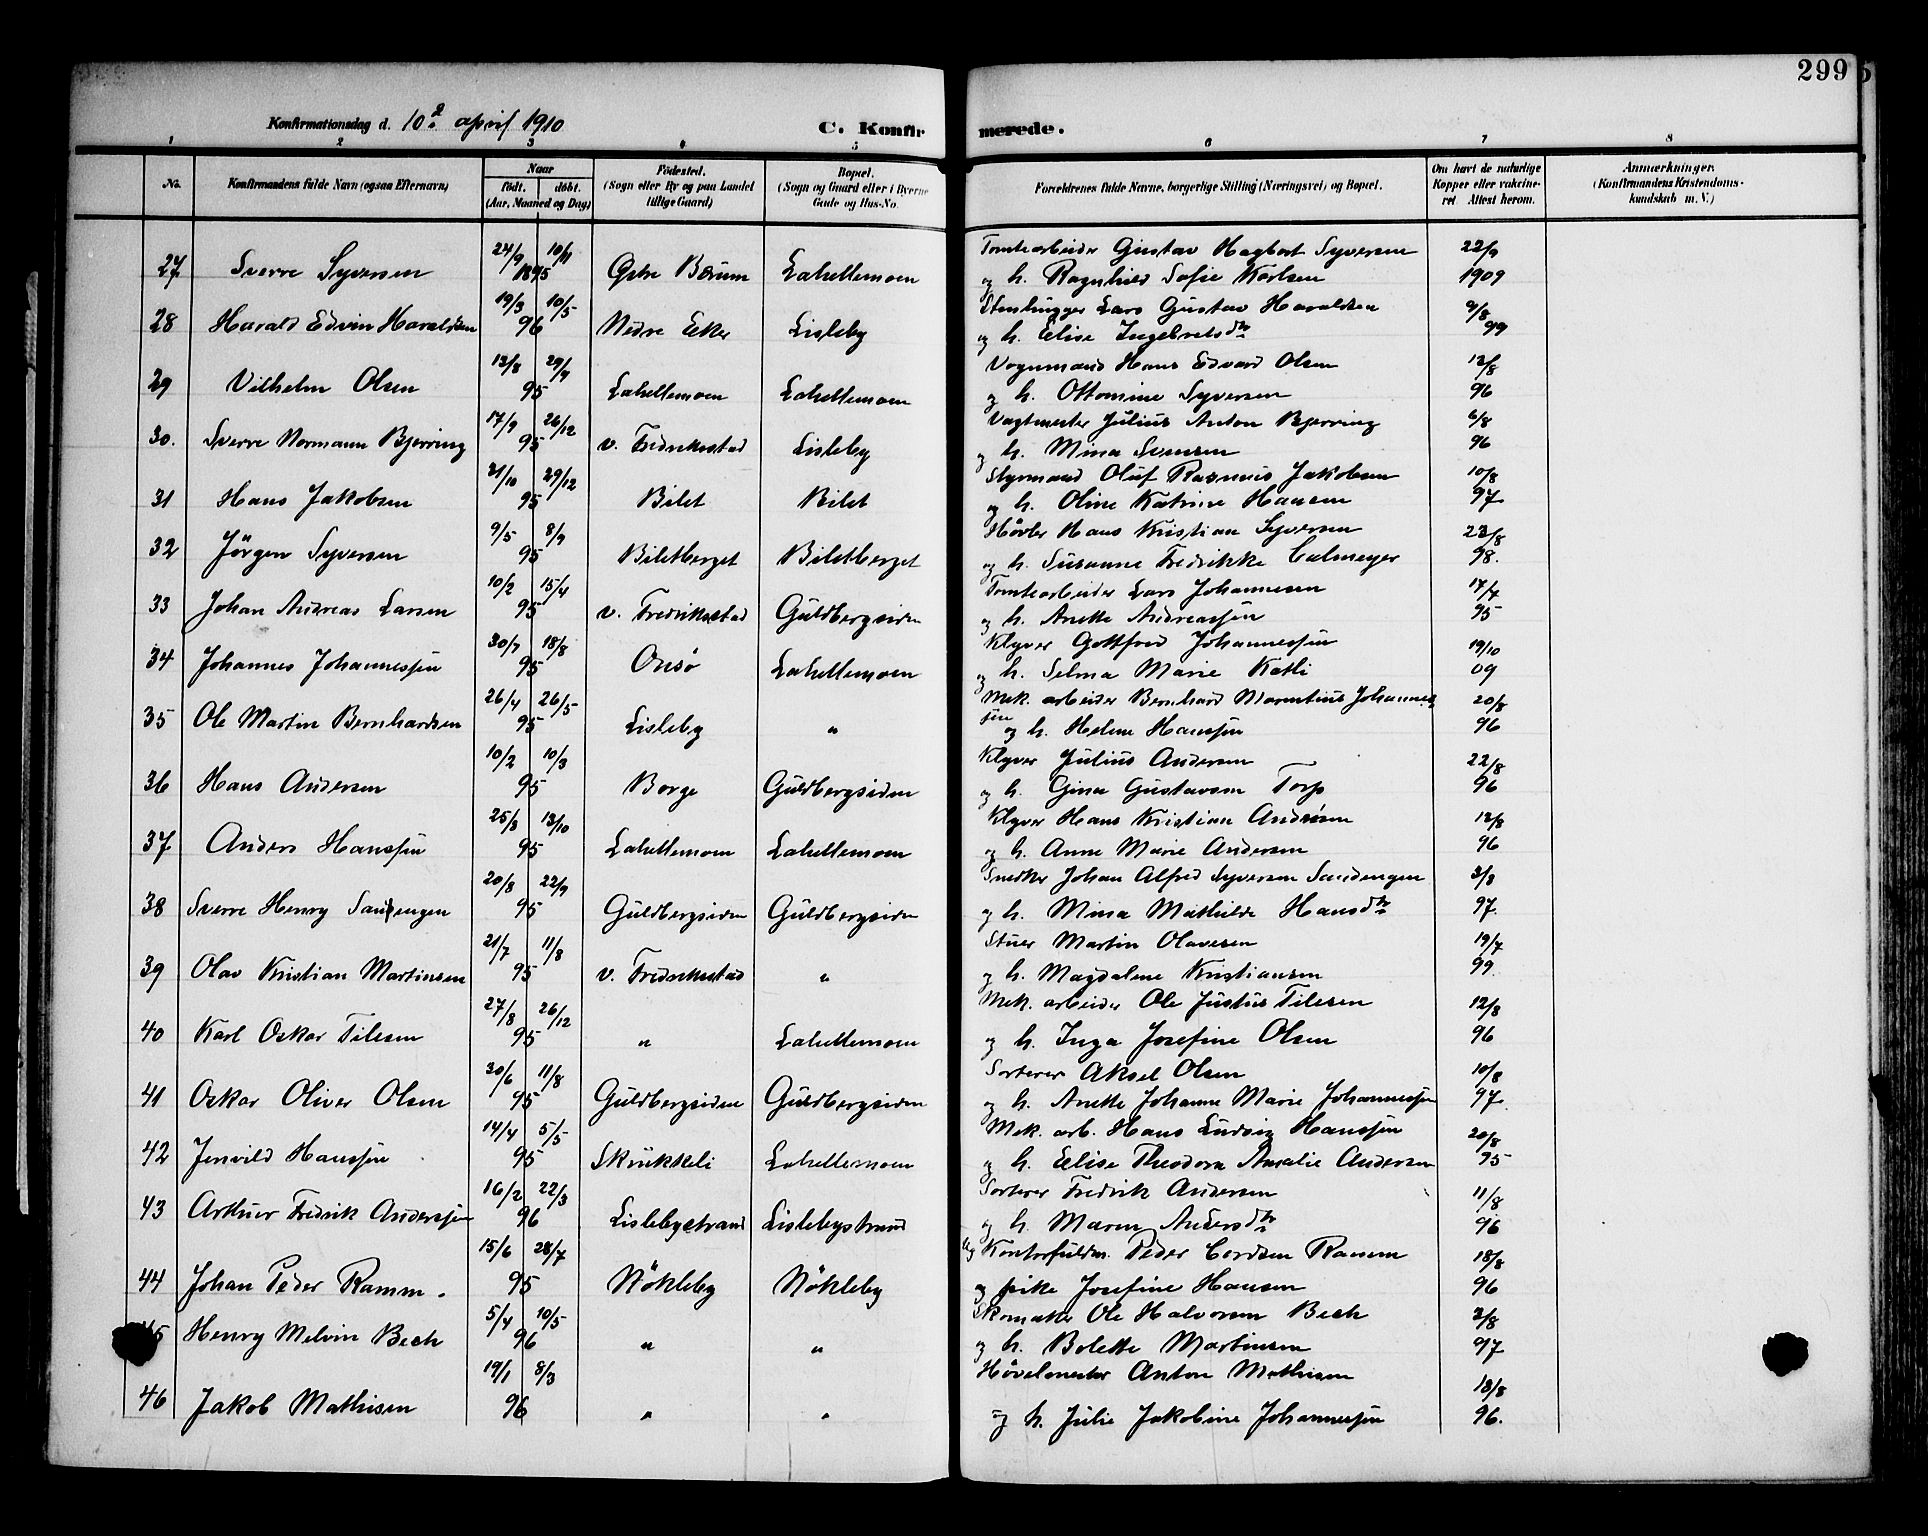 299
Konfirmationsdag d. 10. april 1910
C. Konfirmerede.
1 2 3 4 5 6 7 8
No. Konfirmandens fulde Navn (ogsaa Efternavn) Naar født. døbt. (Aar, Maaned og Dag) Fødested. (Sogn eller By og paa Landet tillige Gaard) Bopæl. (Sogn og Gaard eller i Byerne Gade og Hus-No. Forældrenes fulde Navne, borgerlige Stilling (Næringsvei) og Bopæl. Om havt de naturlige Kopper eller vakcineret. Attest herom. Anmærkninger. (Konfirmandens Kristendomskundskab m. V.)
27 Sverre Syversen 24/9 10/11 1895 Østre Bærum Lahellemoen Tomtearbeider Gustav Hagbart Syversen 22/9
og h. Ragnhild Sofie Karlsen 1909
28 Harald Edvin Haraldsen 19/3 10/5 96 Nedre Eker Lisleby Stenhugger Lars Gustav Haraldsen 9/8
og h. Elise Ingebretsdtr 99
29 Vilhelm Olsen 13/8 29/9 95 Lahellemoen Lahellemoen Vognmand Hans Edvard Olsen 13/8
og h. Ottomine Syversen 96
30. Sverre Normann Bjerring 17/9 26/12 95 v. Fredrikstad Lisleby Vagtmester Julius Anton Bjerring 6/8
og h. Mina Svensen 96
31 Hans Jakobsen 21/10 29/12 95 Bilet Bilet Styrmand Oluf Rasmus Jakobsen 10/8
og h. Oline Katrine Hansen 97.
32 Jørgen Syversen 9/5 8/9 95 Biletberget Biletberget Høvler Hans Kristian Syversen 23/8
og h. Susanne Fredrikke Calmeyer 98.
33 Johan Andreas Larsen 10/2 15/4 95 v. Fredrikstad Guldbergsiden Tomtearbeider Lars Johannesen 17/7
og h. Anette Andreassen 95
34 Johannes Johannessen 30/7 18/8 95 Onsø Lahellemoen Klyver Gottfred Johannessen 19/10
og h. Selma Marie Katli 09
35 Ole Martin Bernhardsen 26/4 26/5 95 Lisleby " Mek. arbeider Bernhard Marentius Johannes 20/8
sen og h. Helene Hanssen 96
36 Hans Andersen 10/2 10/3 95 Borge Guldbergsiden Klyver Julius Andersen 22/8
og h. Gina Gustavsen Torp 96
37 Anders Hanssen 25/8 13/10 95 Lahellemoen Lahellemoen Klyver Hans Kristian Andersen 12/8
og h. Anne Marie Andersen 96
38 Sverre Henry Sandengen 20/8 22/9 95 Guldbergsiden Guldbergsiden Snedker Johan Alfred Syversen Sandengen 3/8
og h. Mina Mathilde Hansdtr 97.
39 Olav Kristian Martinsen 21/7 11/8 95 v. Fredrikstad " Stuer Martin Olavesen 19/7
og h. Magdalene Kristiansen 99.
40 Karl Oskar Tilesen 27/8 26/12 95 " Lahellemoen Mek. arbeider Ole Justus Tilesen 12/8
og h. Inga Josefine Olsen 96
41 Oskar Oliver Olsen 30/6 11/8 95 Guldbergsiden Guldbergsiden Sorterer Aksel Olsen 10/8
og h. Anette Johanne Marie Johannessen 97.
42 Jenvild Hanssen 14/4 5/5 95 Skrukkeli Lahellemoen Mek. arb. Hans Ludvig Hanssen 20/8
og h. Elise Theodora Amalie Andersen 95
43 Arthur Fredrik Anderssen 16/2 22/3 96 Lislebystrand Lislebystrand Sorterer Fredrik Andersen 11/8
og h. Maren Andersdtr 96
44 Johan Peder Ramm. 15/6 28/7 95 Nøkleby Nøkleby Kontorfuldm. Peder Cordsen Ramm 18/8
og pike Josefine Hansen 96
45 Henry Melvin Bech 5/4 10/5 96 " " Skomaker Ole Halvorsen Bech 3/8
og h. Bolette Martinsen 97
46 Jakob Mathisen 19/1 8/3 96 " " Høvelmester Anton Mathisen 18/8
og h. Julie Jakobine Johannessen 96.